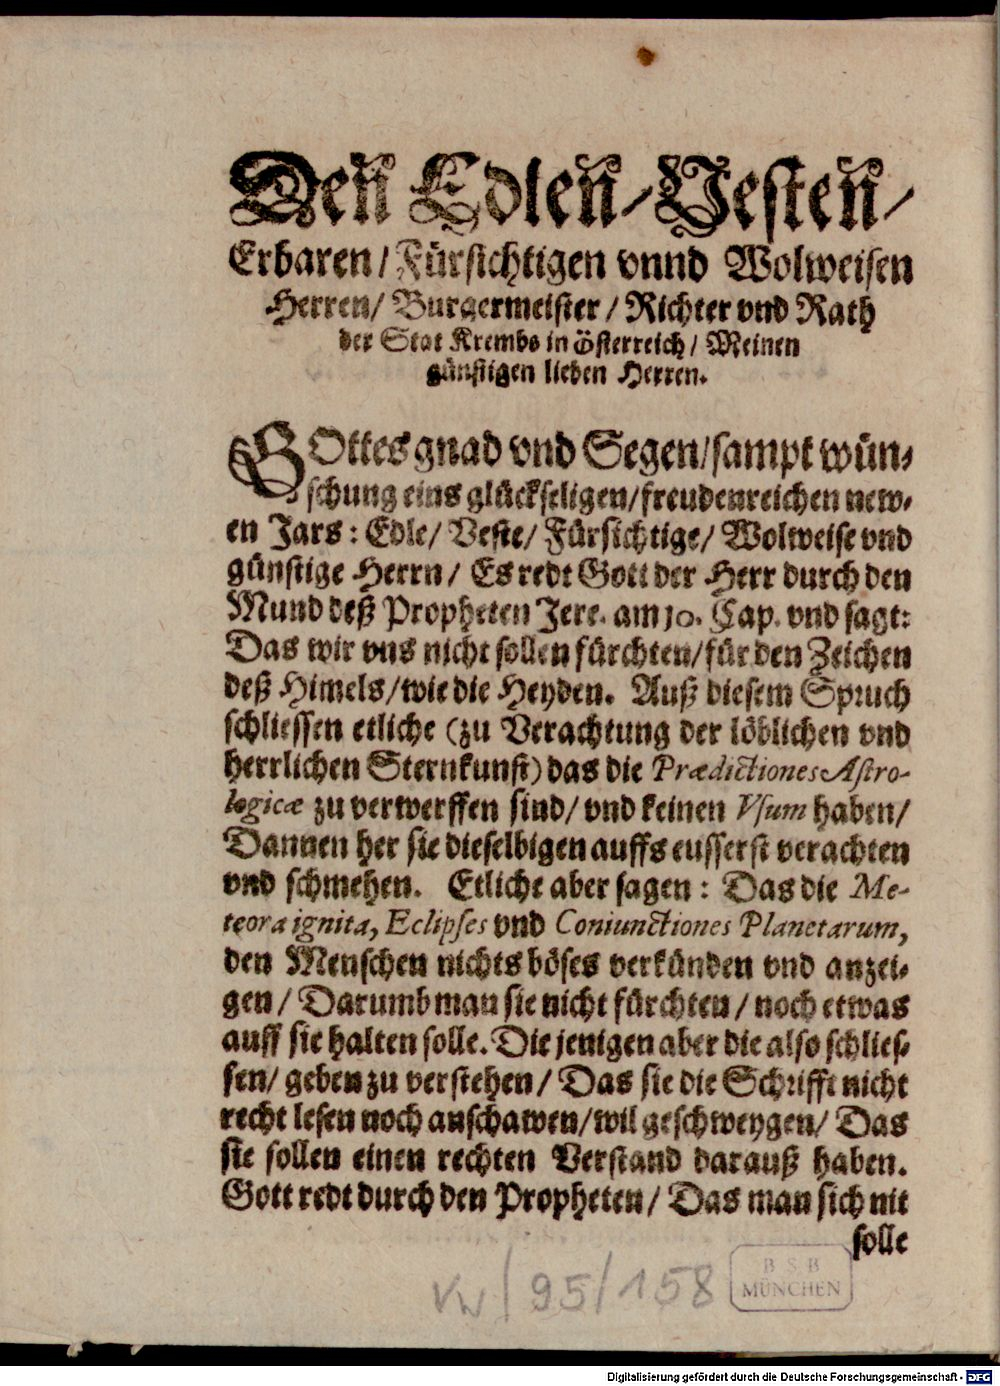 Den̄ Edlen̄/ Vesten̄/
Erbaren/ Fürsichtigen vnnd Wolweisen
Herren/ Burgermeister/ Richter vnd Rath
der Stat Krembs in österreich/ Meinen
günstigen lieben Herren.
GOttes gnad vnd Segen/ sampt wün-
schung eins glückseligen/ freudenreichen new-
en Jars: Edle/ Veste/ Fürsichtige/ Wolweise vnd
günstige Herrn/ Es redt Gott der Herr durch den
Mund deß Propheten Jere. am 10. Cap. vnd sagt:
Das wir vns nicht sollen fürchten/ für den Zeichen
deß Himels/ wie die Heyden. Auß diesem Spruch
schliessen etliche (zu Verachtung der löblichen vnd
herrlichen Sternkunst) das die Prædictiones Astro-
logicæ zu verwerffen sind/ vnd keinen Vsum haben/
Dannen her sie dieselbigen auffs eusserst verachten
vnd schmehen. Etliche aber sagen: Das die Me-
teora ignita, Eclipses vnd Coniunctiones Planetarum,
den Menschen nichts böses verkünden vnd anzei-
gen/ Darumb man sie nicht fürchten/ noch etwas
auff sie halten solle. Die jenigen aber die also schlies-
sen/ geben zu verstehen/ Das sie die Schrifft nicht
recht lesen noch anschawen/ wil geschweygen/ Das
sie sollen einen rechten Verstand darauß haben.
Gott redt durch den Propheten/ Das man sich nit
solle
VW/95/158
BSB
MÜNCHEN
Digitalisierung gefördert durch die Deutsche Forschungsgemeinschaft - DFG